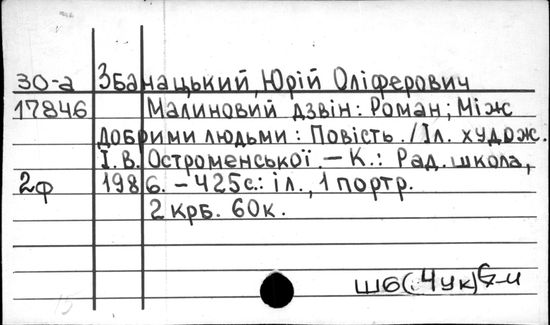 30-а Збанацький, Юрій Оліферович
17846 Малиновий дзвін: Роман; Між
добрими людьми: Повість. / Іл. худож.
І. В. Остроменської. — К.: Рад. школа,
2ф 1986. — 425с.: іл., 1 портр.
2 крб. 60к.
Ш6(4Ук)